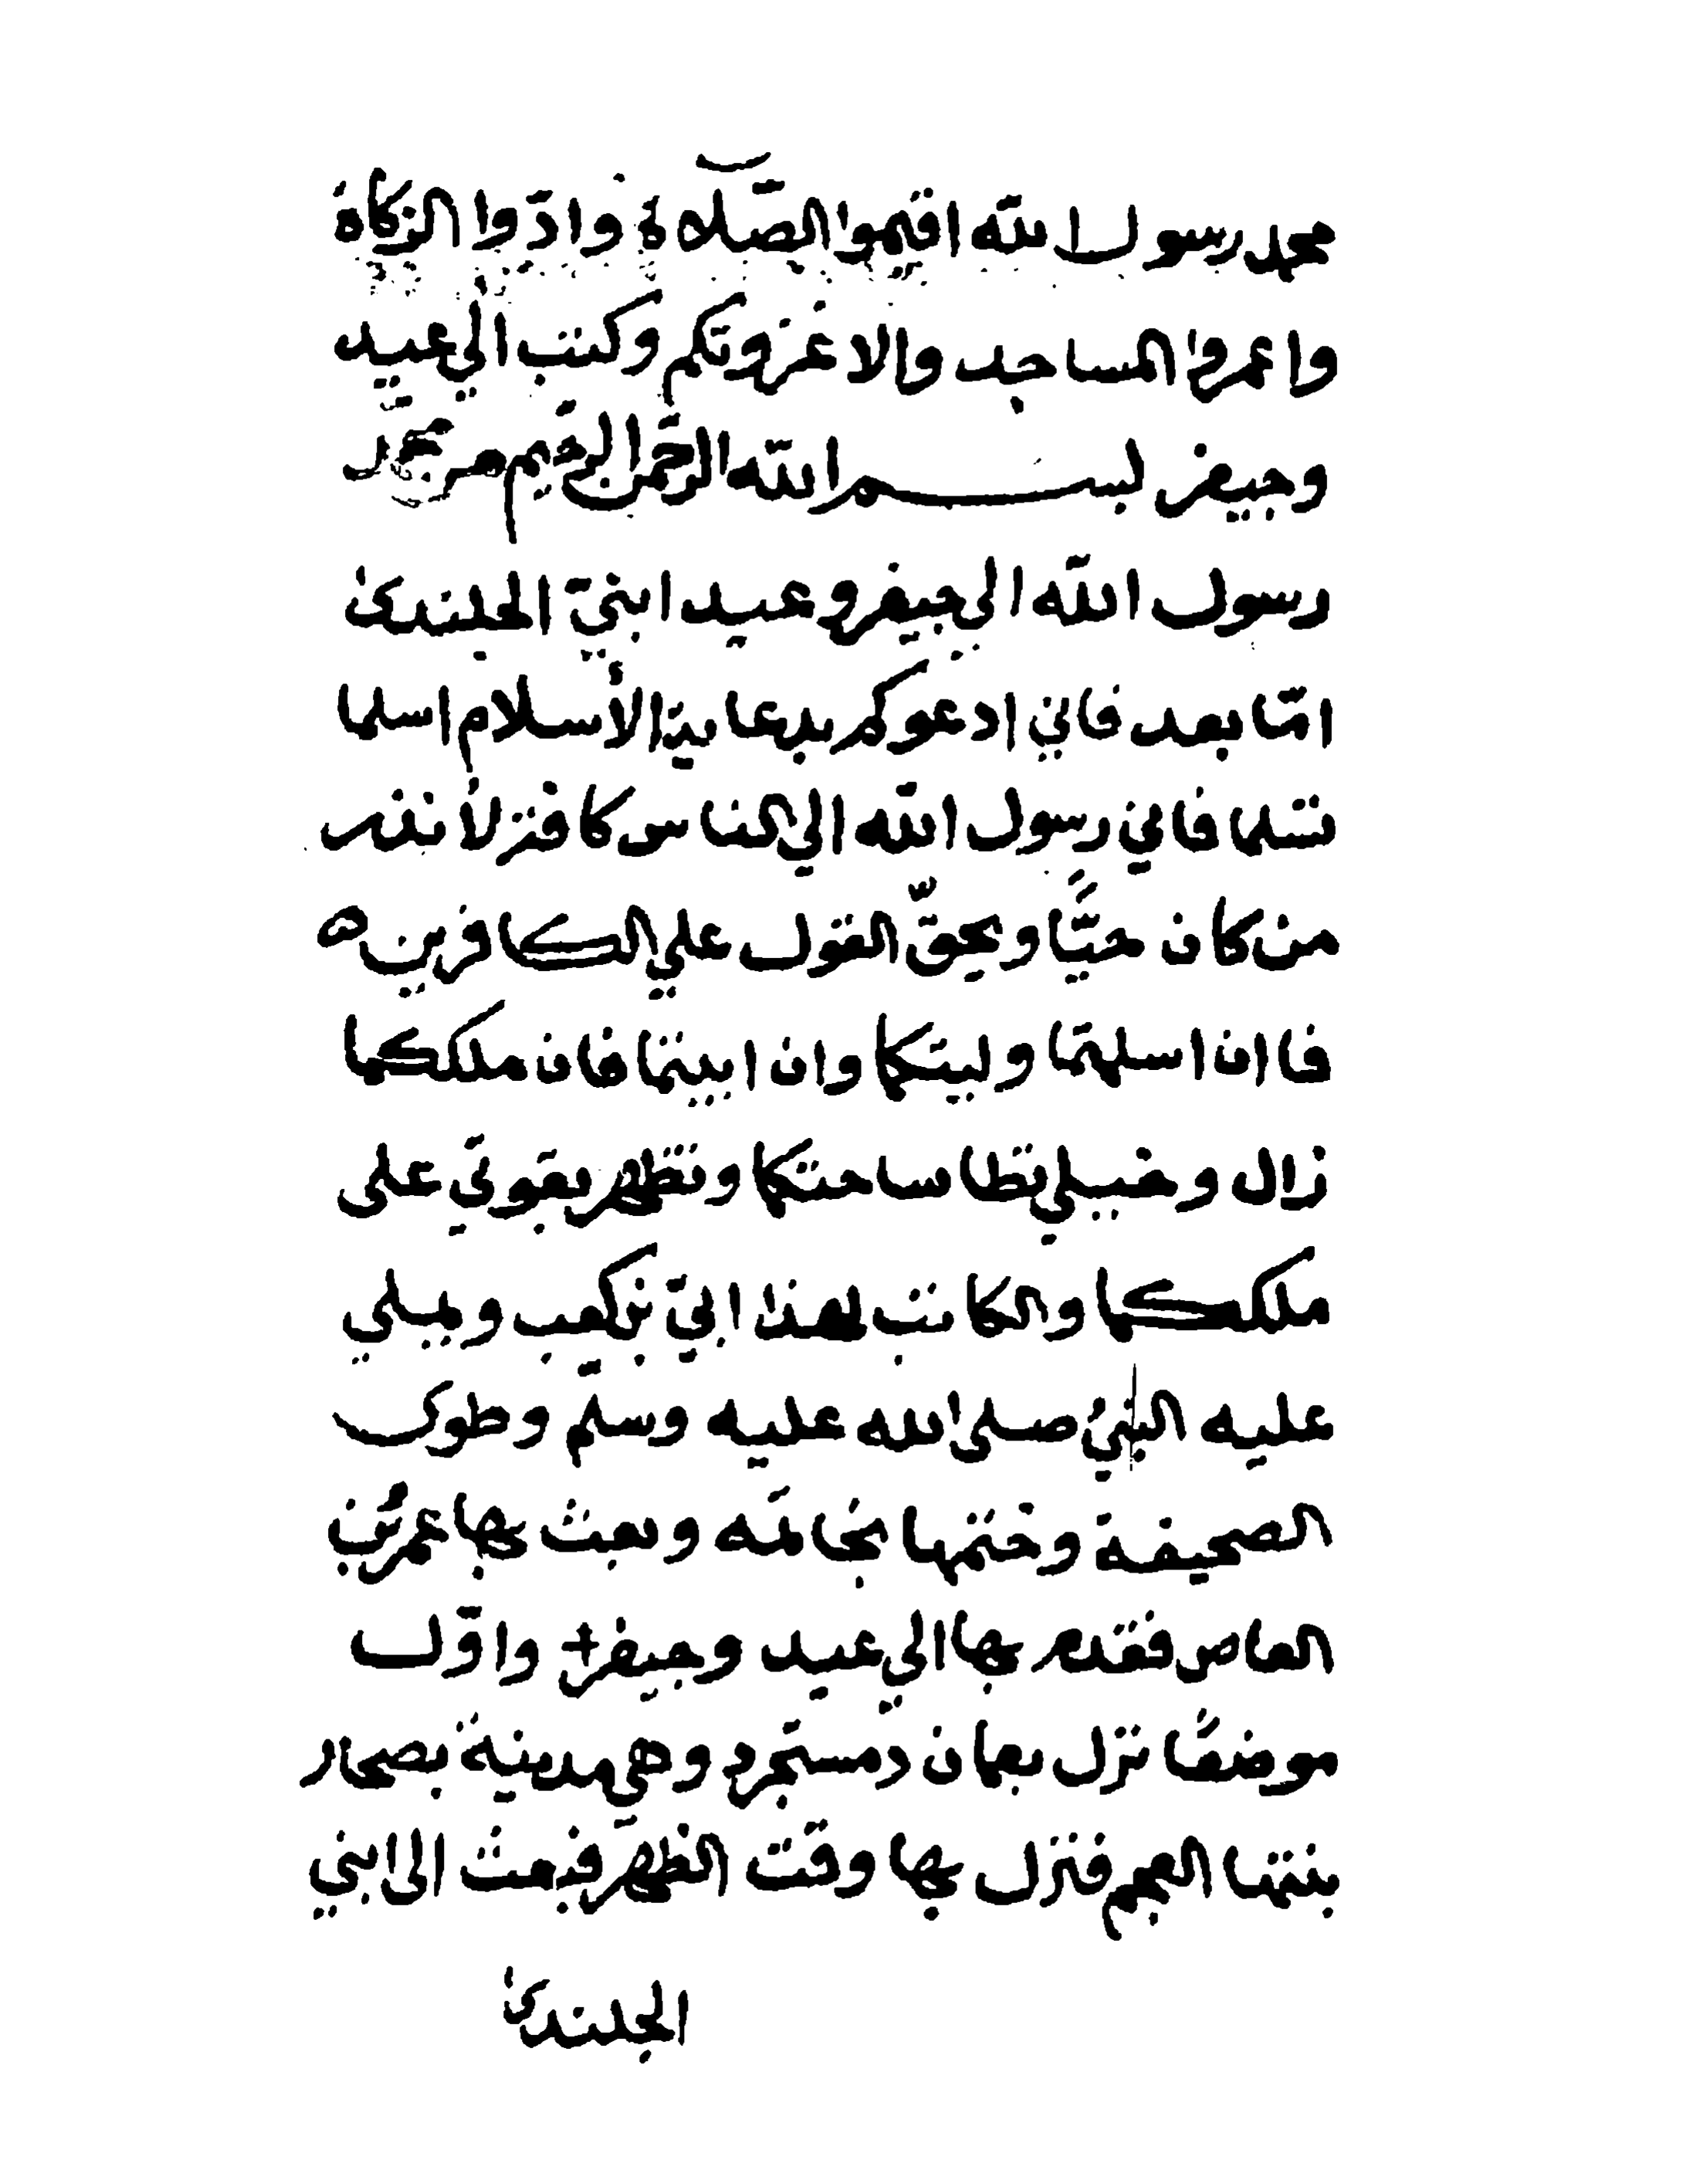 محمد رسول الله اقيموا الصّلاة وادّوا الزكاة
واعمروا المساجد والا غزوتكم وكتب الي عبيد
وجيفر بسم الله الرّحمن الرّحيم من محمّد
رسول الله الي جيفر وعبيد ابنيّ الجلندى
امّا بعد فاني ادعوكم بدعاية الأسلام اسلما
تسلما فاني رسول الله الي الناس كافة لأنذر
من كان حيًّا ويحقّ القول علي الكافرين ه
فاان اسلمتما وليتكما وان ابيتما فان ملككما
زال وخيلي تطا ساحتكما وتظهر بقوتي على
ملككما والكاتب لهذا ابيّ بن كعب ويملي
عليه النبيُّ صلى الله عليه وسلّم وطوى
الصحيفة وختمها بخاتمه وبعث بها عمرُو بن
العاص فقدم بها الي عبيد وجيفر+ واوّل
موضعًا نزل بعمان دمستجرد وهي مدينة بصحار
بنتها العجم فنزل بها وقت الظهر فبعث الى ابني
الجلندى